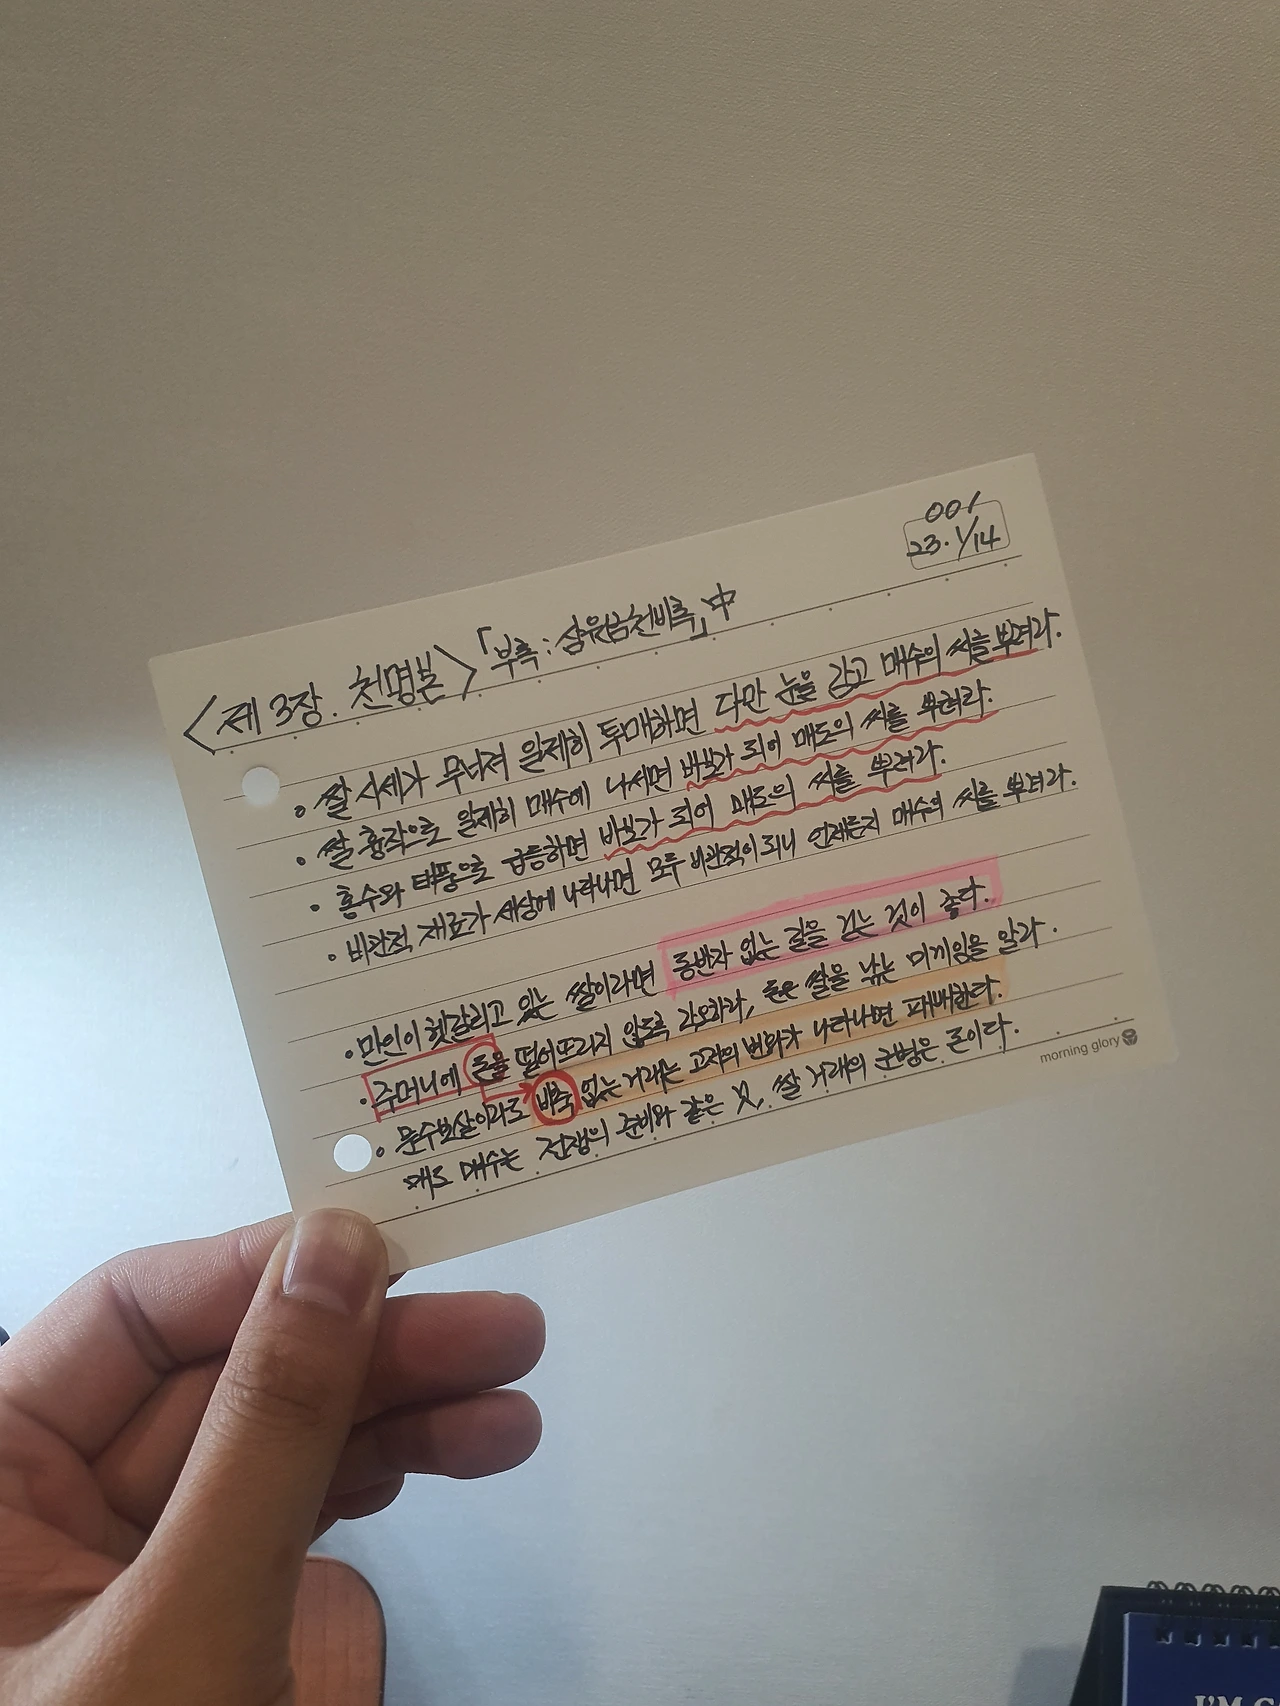 001
23. 1/14
<제 3장. 천명본> 「부록 : 삼원금천비록」中
• 쌀 시세가 무너져 일제히 투매하면 다만 눈을 감고 매수의 씨를 뿌려라.
• 쌀 흉작으로 일제히 매수에 나서면 바보가 되어 매도의 씨를 뿌려라.
• 홍수와 태풍으로 급등하면 바보가 되어 매도의 씨를 뿌려라.
• 비관적 재료가 세상에 나타나면 모두 비관적이 되니 언제든지 매수의 씨를 뿌려라.
• 만인이 헷갈리고 있는 쌀이라면 동반자 없는 길을 걷는 것이 좋다.
• 주머니에 돈을 떨어뜨리지 않도록 각오하라, 돈은 쌀을 낚는 미끼임을 알라.
• 문수보살이라도 비축 없는 거래는 고저의 변화가 나타나면 패배한다.
매도 매수는 전쟁의 준비와 같은 것, 쌀 거래의 군병은 돈이다.
morning glory
I'M